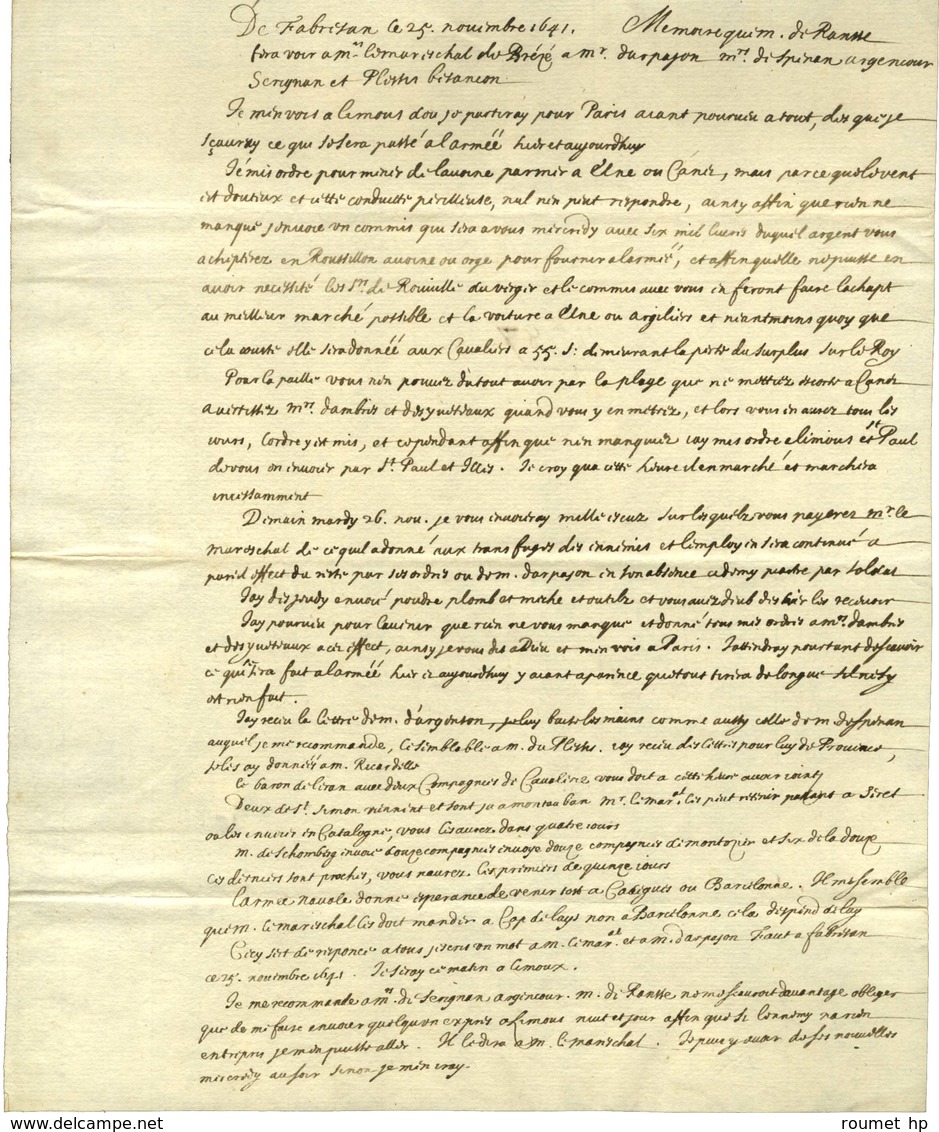 De Fabresan ce 25. novembre 1641. Memoire que m. de Ransse
fera voir a mr. le mareschal de Brézé a mr. darpajon mrs. despenan argencour
Serignan et Plessis besancon
Je men vois a limous dou je partiray pour Paris aiant pourveu a tout, des que je
sçauray ce qui se sera passé a larméé hier et aujourdhuy
Jé mis ordre pour mener de lavoine par mer a Elne ou Canez, mais parce que le vent
est douteux et cette conduitte perilleuse, nul nen peut respondre, ainsy affin que rien ne
manque jenvoie un commis qui sera a vous mercredy avec six mil livres duquel argent vous
achepterez en Roussillon avoine ou orge pour fournir a larméé, et affin quelle ne puisse en
avoir necessité les srs. de Rouville du vergier et le commis avec vous en feront faire lachapt
au meilleur marché possible et la voiture a Elne ou argiliers et neantmoins quoy que
cela couste elle sera donnéé aux Cavaliers a 55. s. demeurant la perte du surplus sur le Roy
Pour la paille vous nen pouvez du tout avoir par la plage que ne mettiez escorte a Canez
avertissez mrs. dambres et desyveteaux quand vous y en metrez, et lors vous en aurez tous les
jours, lordre y est mis, et cependant affin que nen manquiez jay mis ordre a limous et st Paul
de vous en envoier par st. Paul et Illes. Je croy qua cette heure il en marche et marchera
incessamment
Demain mardy 26. nov. je vous envoieray mille escuz sur lesquelz vous payerez mr. le
mareschal de ce quil a donné aux transfuges des ennemis et lemploy en sera continué a
pareil effect du reste par ses ordres ou de m. darpajon en son absence a demy pistole par soldat
Jay des jeudy envoié poudre plomb et meche et outilz et vous avez deub des hier les recevoir
Jay pourveu pour lavenir que rien ne vous manque et donné tous mes ordres a mrs. dambres
et desyveteaux a cet effect, ainsy je vous dis a Dieu et men vois a Paris. Jattendray pourtant de scavoir
ce qui sera fait a larméé hier et aujourdhuy y aiant aparence que tout tirera de longue sil ne sy
est rien fait.
Jay receu la lettre de m. d'argenson, je luy baise les mains comme aussy celle de m. despenan
auquel je me recommande, le semblable a m. du Plessis. jay receu des lettres pour luy de Province,
je les ay donnéés a m. Ricardelle
Le baron de leran avec deux Compagnies de Cavalerie vous doit a cette heure avoir joint
Deux de st. Simon viennent et sont ja a montauban mr. le maral. les peut retenir passant a Seret
ou les envoier en Catalogne, vous les aurez dans quatre jours
m. de Schomberg envoie douze compagnies envoye douze compagnies de montozier et six de la douze
ces derniers sont proches, vous naurez les premiers de quinze jours
Larméé navale donne esperance de venir tost a Cadequs ou Barcelonne. Il me semble
que m. le mareschal les doit mander a Cap de lays non a Barcelonne cela despend de luy
Cecy sert de responce a tous jescris un mot a m. le maral. et a m. darpajon Faut a fabresan
ce 25. novembre 1641. Je seray ce matin a limoux.
Je me recommande a mrs. de Serignan argencour. m. de Ransse ne me scauroit davantage obliger
que de me faire envoier quelquun expres a limous nuit et jour affin que si lennemy na rien
entrepris je men puisse aller. Il le dira a m. le mareschal. Je puis y avoir de ses nouvelles
mercredy au soir sinon je men iray.
roumet hp